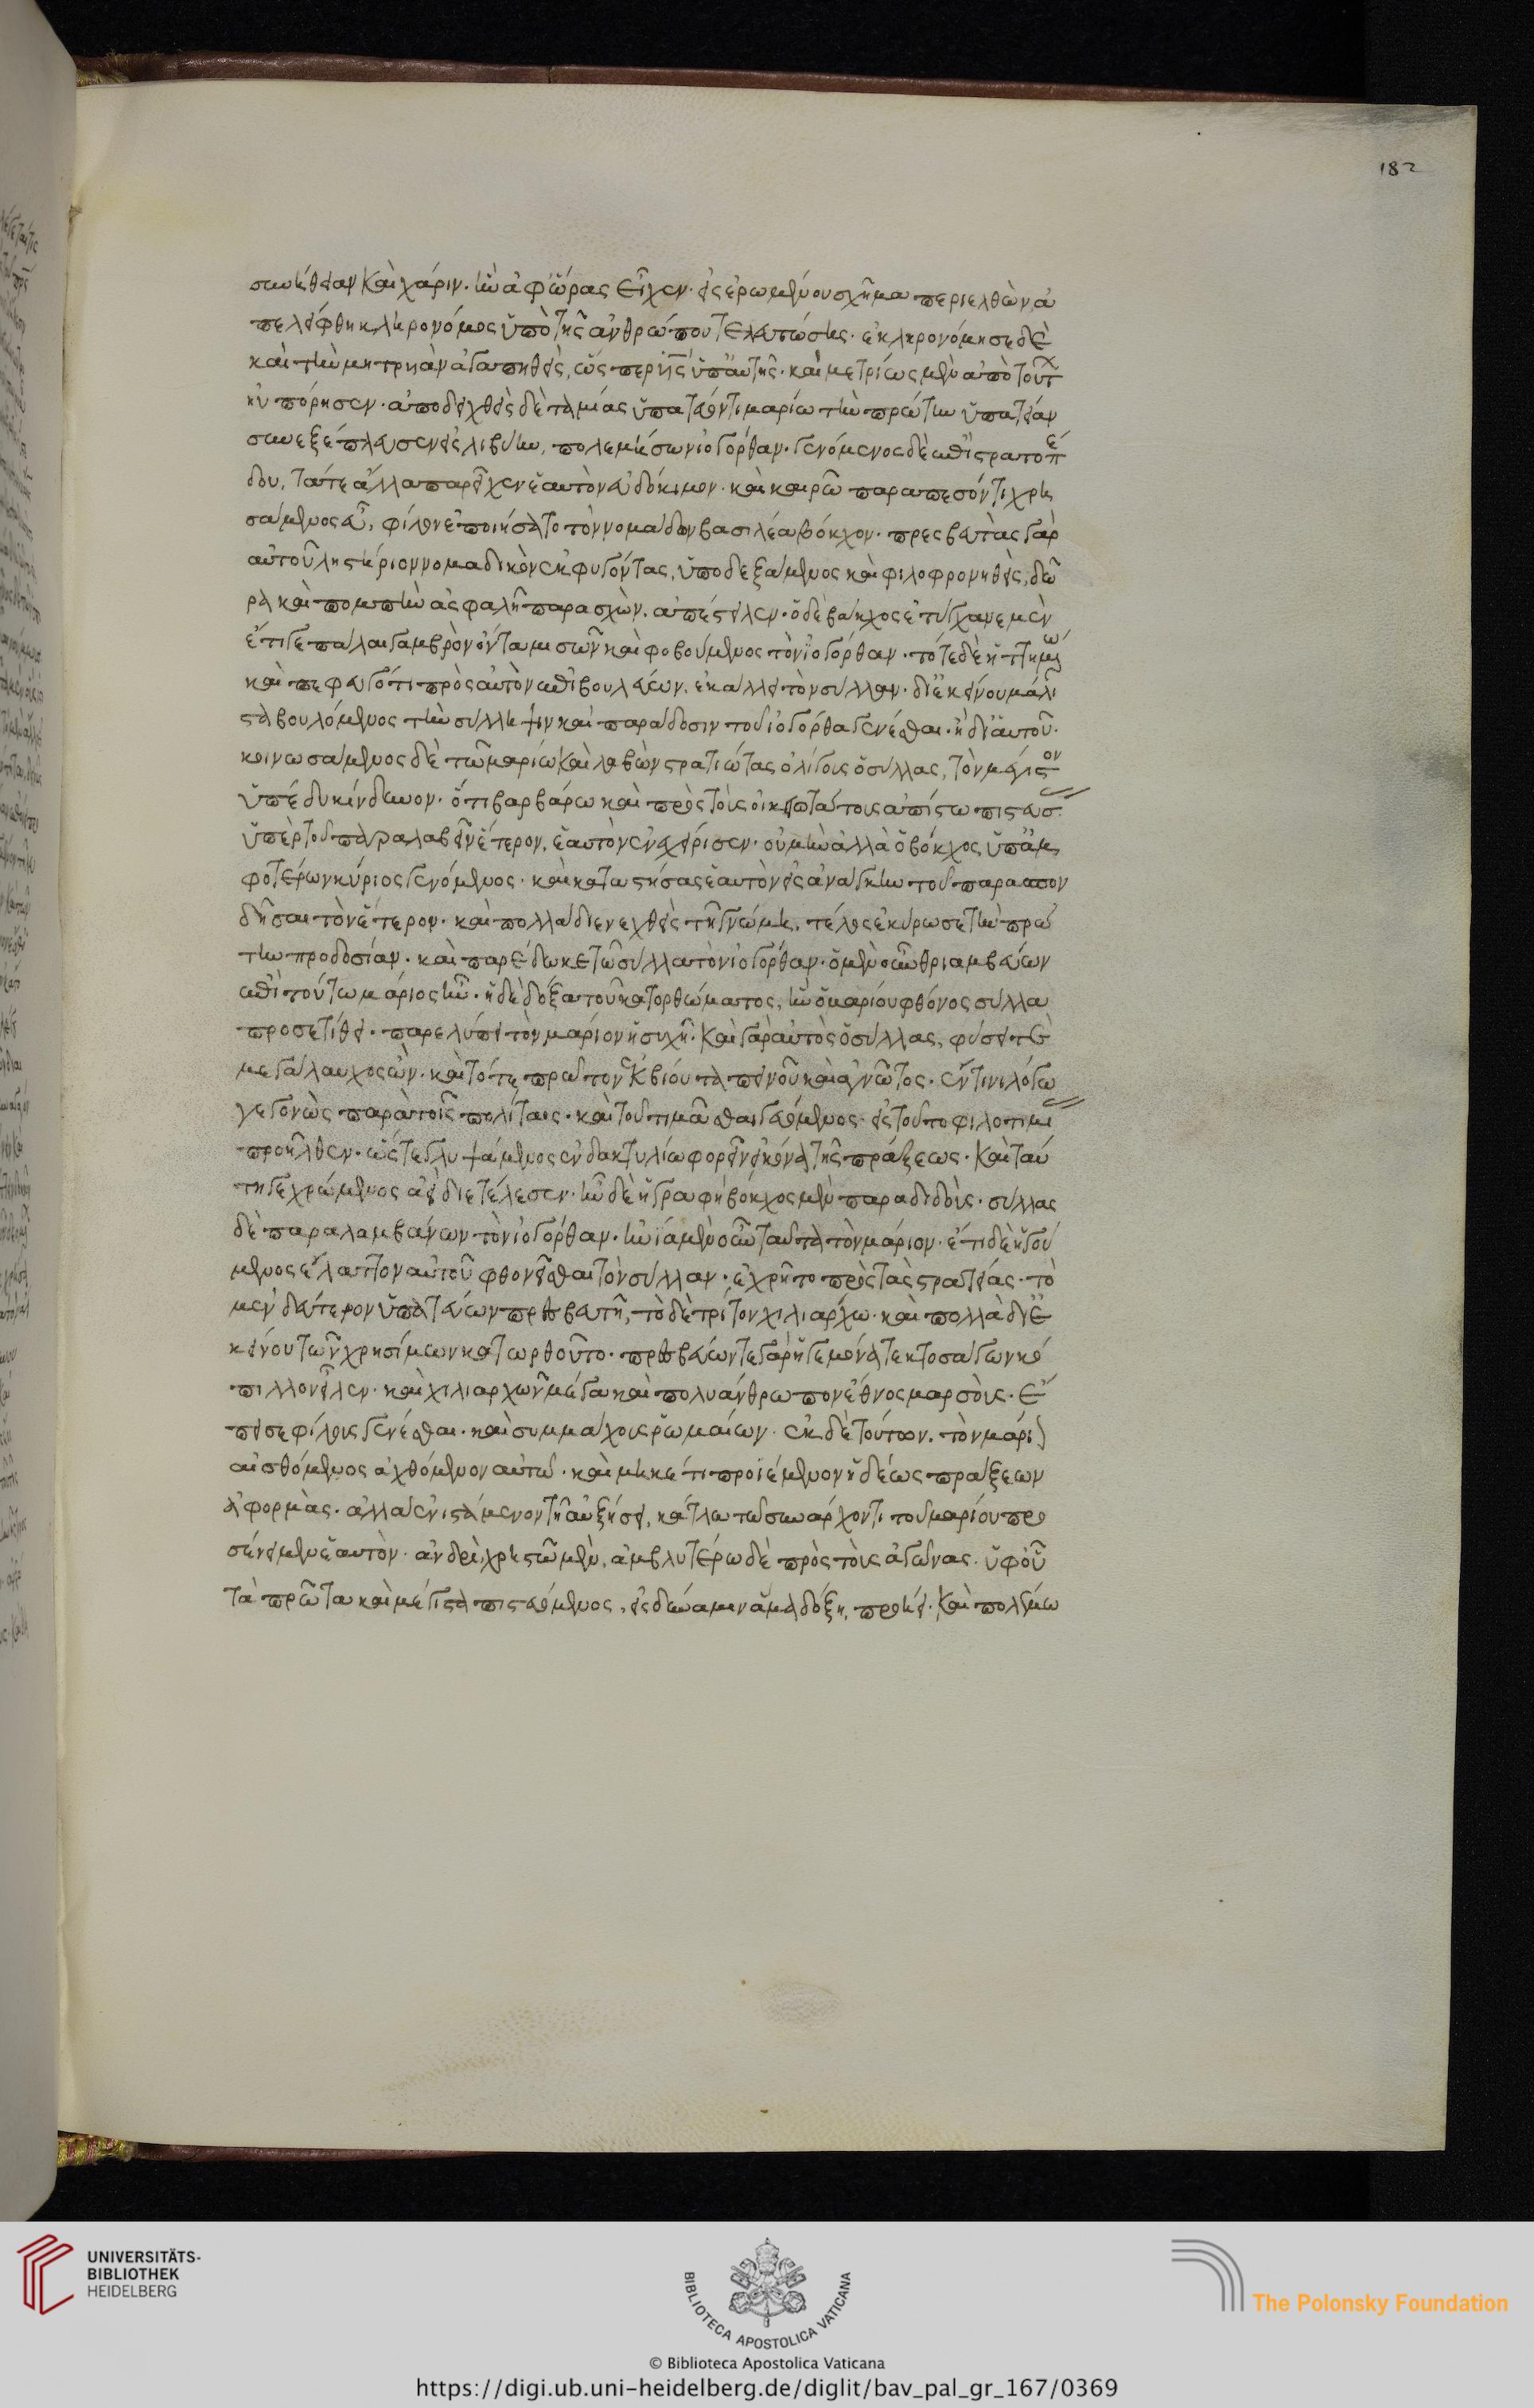 συνήθειαν καὶ χάριν· ἣν ἀφ᾽ ὥρας εἶχεν· εἰς ἐρωμένου σχῆμα περιελθὼν, ἀ
πελείφθη κληρονόμος ὑπὸ τῆς ἀνθρώπου τελευτώσης· ἐκληρονόμησε δὲ
καὶ τὴν μητρυιὰν ἀγαπηθεὶς, ὥσπερ υἱὸς ὑπ᾽ αὐτῆς· καὶ μετρίως μὲν ἀπὸ τούτ
ηὐπόρησεν· ἀποδειχθεὶς δὲ ταμίας ὑπατεύοντι μαρίω τὴν πρώτην ὑπατείαν
συνεξέπλευσεν εἰς λιβύην, πολεμήσων ἰογόρθαν· γενόμενος δὲ ἐπὶ στρατοπέ
δου, τά τε ἄλλα παρεῖχεν ἑαυτὸν εὐδόκιμον· καὶ καιρῶ παραπεσόντι χρη
σάμενος εὖ, φίλον ἐποιήσατο τὸν νομάδων βασιλέα βόκχον· πρεσβευτὰς γὰρ
αὐτοῦ ληστήριον νομαδικὸν ἐκφυγόντας, ὑποδεξάμενος καὶ φιλοφρονηθεὶς, δῶ
ρα καὶ πομπὴν ἀσφαλῆ παρασχὼν, ἀπέστειλεν· ὁ δὲ βόκχος ἐτύγχανε μὲν
ἔτι γε πάλαι γαμβρὸν ὄντα μισῶν καὶ φοβούμενος τὸν ἰογόρθαν· τότε δὲ ἡττημένω
καὶ πεφευγότι πρὸς αὐτὸν ἐπιβουλεύων, ἐκάλει τὸν σύλλαν· δι᾽ ἐκείνου μάλι
στα βουλόμενος τὴν σύλληψιν καὶ παράδοσιν τοῦ ἰογόρθα γενέσθαι· ἢ δι᾽ αὑτοῦ·
κοινωσάμενος δὲ τῶ μαρίω καὶ λαβὼν στρατιώτας ὀλίγους ὁ σύλλας, τὸν μέγιστον
ὑπέδυ κίνδυνον· ὅτι βαρβάρω καὶ πρὸς τοὺς οἰκειοτάτους ἀπίστω πιστεύσ
ὑπὲρ τοῦ παραλαβεῖν ἕτερον, ἑαυτὸν ἐνεχείρισεν· οὐ μὴν ἀλλὰ ὁ βόκχος ὑπ᾽ ἀμ
φοτέρων κύριος γενόμενος· καὶ καταστήσας ἑαυτὸν εἰς ἀνάγκην τοῦ παρασπον
δῆσαι τὸν ἕτερον· καὶ πολλὰ διενεχθεὶς τῆ γνώμη, τέλος ἐκύρωσε τὴν πρώ
την προδοσίαν· καὶ παρέδωκε τῶ σύλλα τὸν ἰογόρθαν· ὁ μὲν οὖν θριαμβεύων
ἐπὶ τούτω μάριος ἦν· ἡ δὲ δόξα τοῦ κατορθώματος, ἣν ὁ μαρίου φθόνος σύλλα
προσετίθει· παρελύπει τὸν μάριον ἡσυχῆ· καὶ γὰρ αὐτὸς ὁ σύλλας, φύσει τε
μεγάλαυχος ὢν· καὶ τότε πρῶτον ἐκ βίου ταπεινοῦ καὶ ἀγνῶτος· ἔν τινι λόγω
γεγονὼς παρὰ τοῖς πολίταις· καὶ τοῦ τιμᾶσθαι γευόμενος· εἰς τοῦτο φιλοτιμί
προῆλθεν· ὥστε γλυψάμενος ἐν δακτυλίω φορεῖν εἰκόνα τῆς πράξεως· καὶ ταύ
τη γε χρώμενος ἀεὶ διετέλεσεν· ἦν δὲ ἡ γραφὴ βόκχος μὲν παραδιδοὺς· σύλλας
δὲ παραλαμβάνων τὸν ἰογόρθαν· ἠνία μὲν οὖν ταῦτα τὸν μάριον· ἔτι δὲ ἡγού
μενος ἐλάττονα αὐτοῦ φθονεῖσθαι τὸν σύλλαν· ἐχρῆτο πρὸς τὰς στρατείας· τὸ
μὲν δεύτερον ὑπατεύων πρεσβευτῆ, τὸ δὲ τρίτον χιλιάρχω· καὶ πολλὰ δι᾽ ἐ
κείνου τῶν χρησίμων κατωρθοῦτο· πρεσβεύων τε γὰρ ἡγεμόνα τεκτοσάγων κό
πιλλον εἷλεν· καὶ χιλιαρχῶν μέγα καὶ πολυάνθρωπον ἔθνος μαρσοὺς· ἔ
πεισε φίλους γενέσθαι· καὶ συμμάχους ῥωμαίων· ἐκ δὲ τούτων, τὸν μάρι
αἰσθόμενος ἀχθόμενον αὐτῶ· καὶ μηκέτι προϊέμενον ἡδέως πράξεων
ἀφορμὰς· ἀλλὰ ἐνιστάμενον τῆ αὐξήσει, κάτλω τῶ συνάρχοντι τοῦ μαρίου προ
σένειμεν ἑαυτὸν· ἀνδρὶ χρηστῶ μὲν, ἀμβλυτέρω δὲ πρὸς τοὺς ἀγῶνας· ὑφ᾽ οὗ
τὰ πρῶτα καὶ μέγιστα πιστευόμενος, εἰς δύναμιν ἅμα δόξη, προήει· καὶ πολέμω
182
UNIVERSITÄTS-
BIBLIOTHEK
HEIDELBERG
BIBLIOTECA APOSTOLICA VATICANA
The Polonsky Foundation
© Biblioteca Apostolica Vaticana
https://digi.ub.uni-heidelberg.de/diglit/bav_pal_gr_167/0369